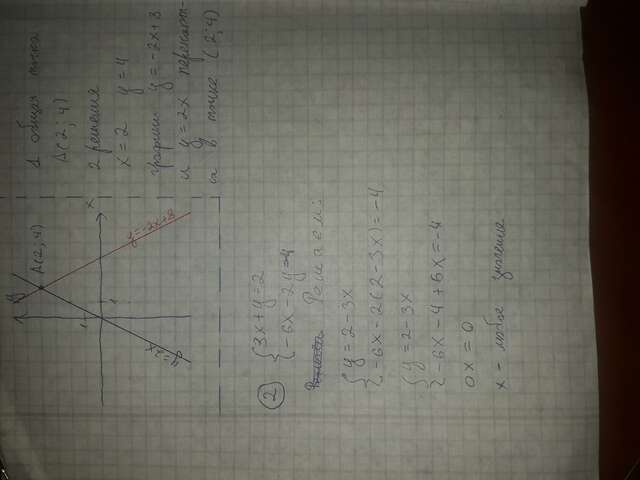 y
A(2; 4)
x
y=-2x+8
1
1
y=2x
1 общая точка
A(2; 4)
2 решения
x=2 y=4
графики y=-2x+8
и y=2x пересекают-
ся в точке (2; 4)
2
{3x+y=2
{-6x-2y=-4
Решаем:
{y=2-3x
{-6x-2(2-3x)=-4
{y=2-3x
{-6x-4+6x=-4
0x=0
x - любое значение